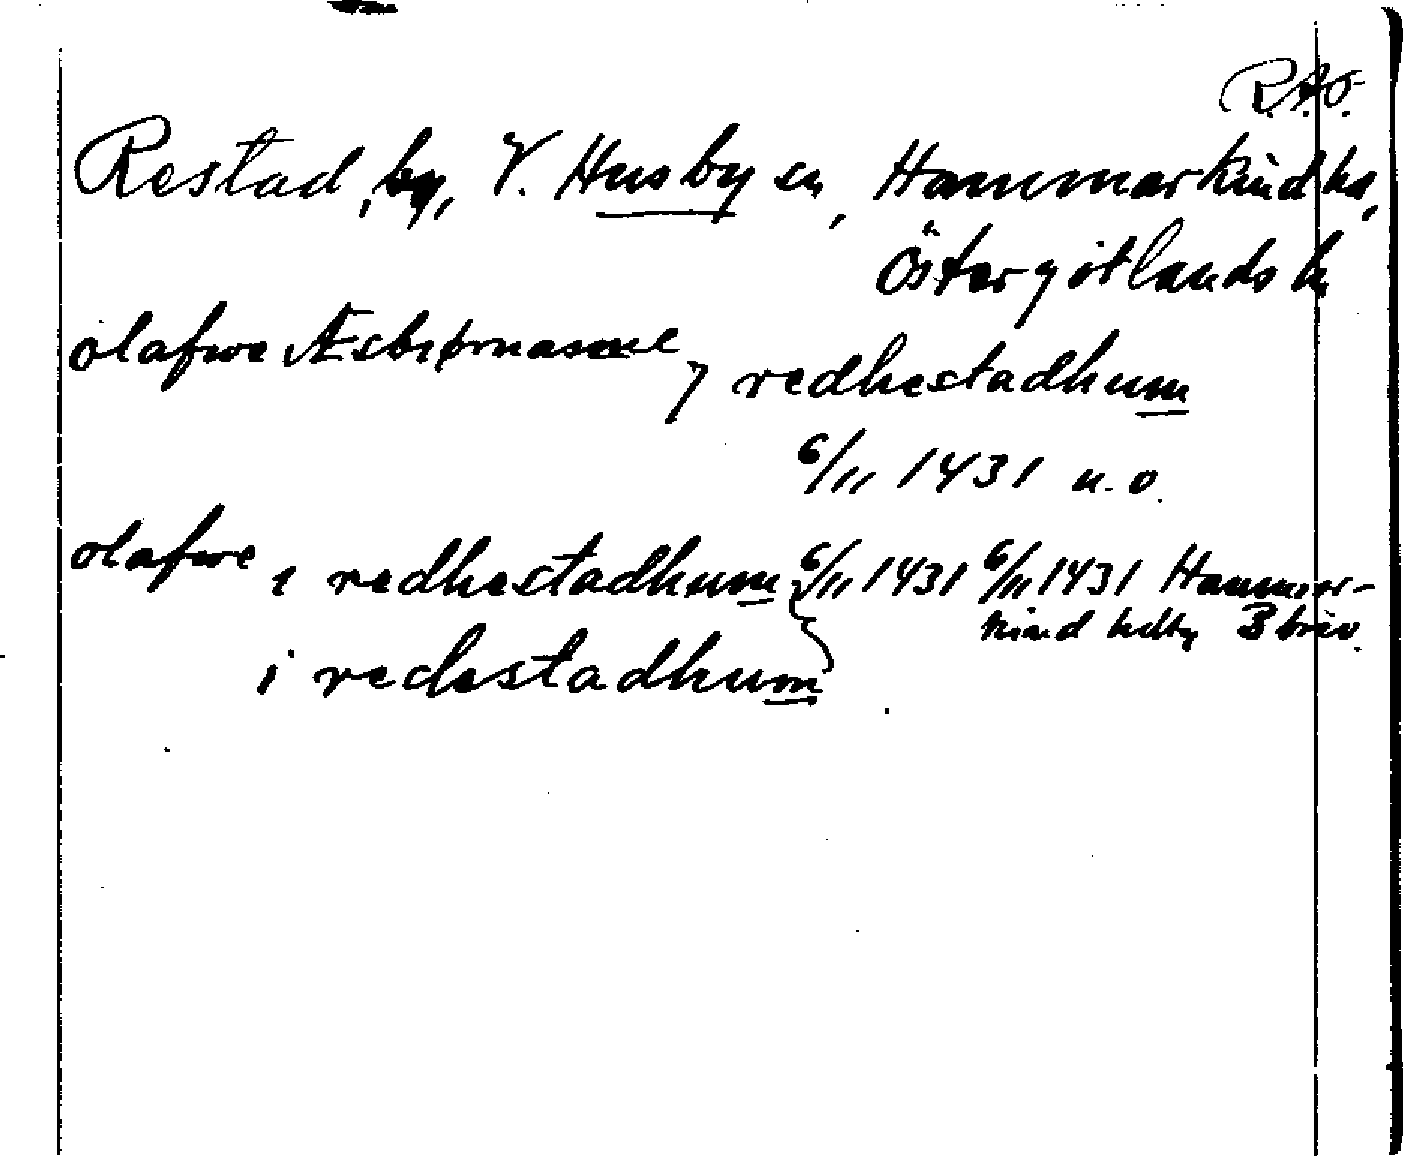 R.A.Ö.
Restad, by, V. Husby sn, Hammarkinds hd,
Östergötlands l.
olafwe Æsbiørnasone
i redhestadhum
6/11 1431 u.o.
olafwe i redhestadhum 6/11 1431 6/11 1431 Hammar-
kind hdtg B brev.
i redestadhum